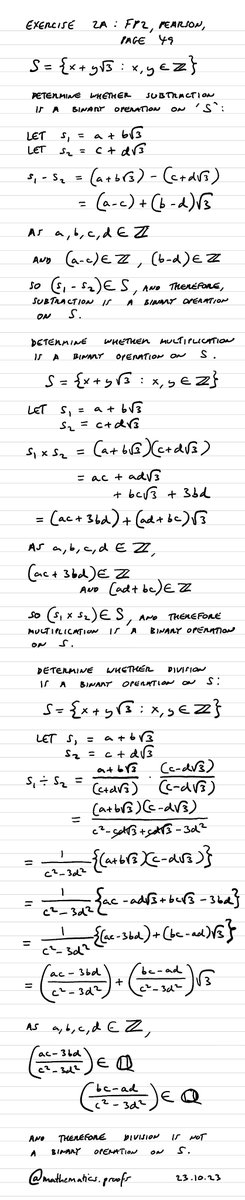 EXERCISE 2A : FP2, PEARSON,
PAGE 49
S = {x + y√3 : x, y ∈ ℤ}
DETERMINE WHETHER SUBTRACTION
IS A BINARY OPERATION ON 'S':
LET s₁ = a + b√3
LET s₂ = c + d√3
s₁ - s₂ = (a+b√3) - (c+d√3)
= (a-c) + (b-d)√3
AS a, b, c, d ∈ ℤ
AND (a-c) ∈ ℤ , (b-d) ∈ ℤ
SO (s₁ - s₂) ∈ S, AND THEREFORE,
SUBTRACTION IS A BINARY OPERATION
ON S.
DETERMINE WHETHER MULTIPLICATION
IS A BINARY OPERATION ON S.
S = {x + y√3 : x, y ∈ ℤ}
LET s₁ = a + b√3
s₂ = c + d√3
s₁ × s₂ = (a+b√3)(c+d√3)
= ac + ad√3
+ bc√3 + 3bd
= (ac + 3bd) + (ad+bc)√3
AS a, b, c, d ∈ ℤ,
(ac + 3bd) ∈ ℤ
AND (ad+bc) ∈ ℤ
SO (s₁ × s₂) ∈ S, AND THEREFORE
MULTIPLICATION IS A BINARY OPERATION
ON S.
DETERMINE WHETHER DIVISION
IS A BINARY OPERATION ON S:
S = {x + y√3 : x, y ∈ ℤ}
LET s₁ = a + b√3
s₂ = c + d√3
s₁ ÷ s₂ = (a+b√3)/(c+d√3) · (c-d√3)/(c-d√3)
= (a+b√3)(c-d√3)/(c² - cd√3 + cd√3 - 3d²)
= 1/(c²-3d²) {(a+b√3)(c-d√3)}
= 1/(c²-3d²) {ac - ad√3 + bc√3 - 3bd}
= 1/(c²-3d²) {(ac-3bd) + (bc-ad)√3}
= ((ac-3bd)/(c²-3d²)) + ((bc-ad)/(c²-3d²))√3
AS a, b, c, d ∈ ℤ,
((ac-3bd)/(c²-3d²)) ∈ ℚ
((bc-ad)/(c²-3d²)) ∈ ℚ
AND THEREFORE DIVISION IS NOT
A BINARY OPERATION ON S.
@mathematics.proofs 23.10.23